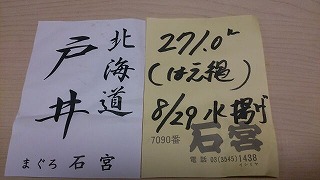 北海道
戸井
まぐろ 石宮
271.0k
(はえ縄)
8/29 水揚げ
7090番
石宮
電話 03(3545)1438